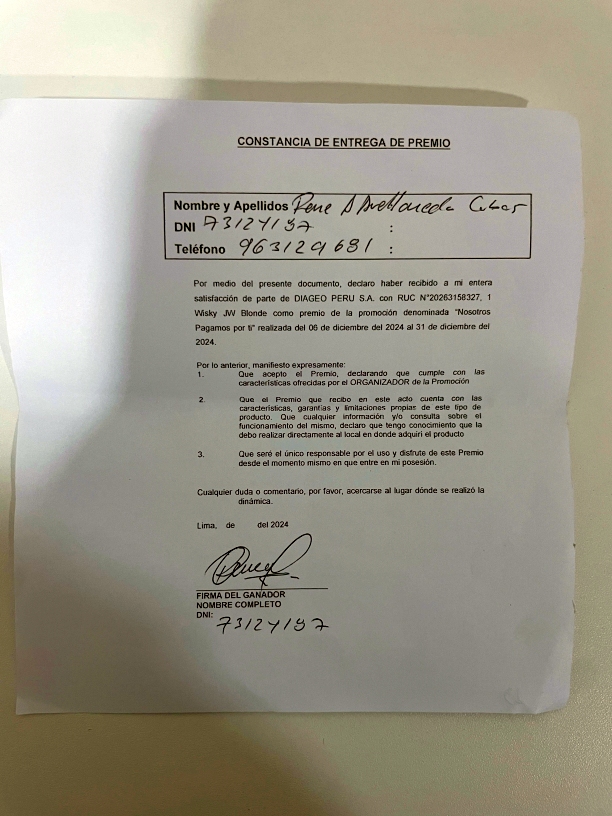 CONSTANCIA DE ENTREGA DE PREMIO
Nombre y Apellidos Rene A Avellaneda
DNI 73124197 :
Teléfono 963129681 :
Por medio del presente documento, declaro haber recibido a mi entera
satisfacción de parte de DIAGEO PERU S.A. con RUC N°20263158327, 1
Wisky JW Blonde como premio de la promoción denominada "Nosotros
Pagamos por ti" realizada del 06 de diciembre del 2024 al 31 de diciembre del
2024.
Por lo anterior, manifiesto expresamente:
1. Que acepto el Premio, declarando que cumple con las
características ofrecidas por el ORGANIZADOR de la Promoción
2. Que el Premio que recibo en este acto cuenta con las
características, garantías y limitaciones propias de este tipo de
producto. Que cualquier información y/o consulta sobre el
funcionamiento del mismo, declaro que tengo conocimiento que la
debo realizar directamente al local en donde adquirí el producto
3. Que seré el único responsable por el uso y disfrute de este Premio
desde el momento mismo en que entre en mi posesión.
Cualquier duda o comentario, por favor, acercarse al lugar dónde se realizó la
dinámica.
Lima, de del 2024
FIRMA DEL GANADOR
NOMBRE COMPLETO
DNI: 73124197